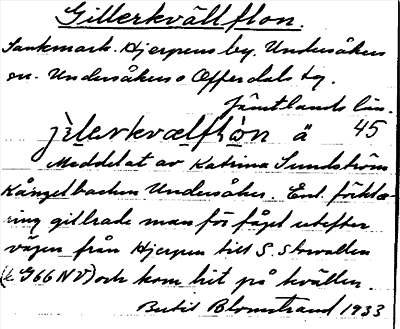 Gillerkvällflon.
Sankmark. Hjerpens by. Undersåkers
sn. Undersåkers o Offerdals tg.
Jämtlands län.
jilerkvælflòn ä 45
Meddelat av Katrina Sundström
Kångelbacken Undersåker. Enl. förkla-
ring gillrade man för fågel utefter
vägen från Hjerpen till S. Storvallen
(k. G66 NV) och kom hit på kvällen.
Bertil Blomstrand 1933